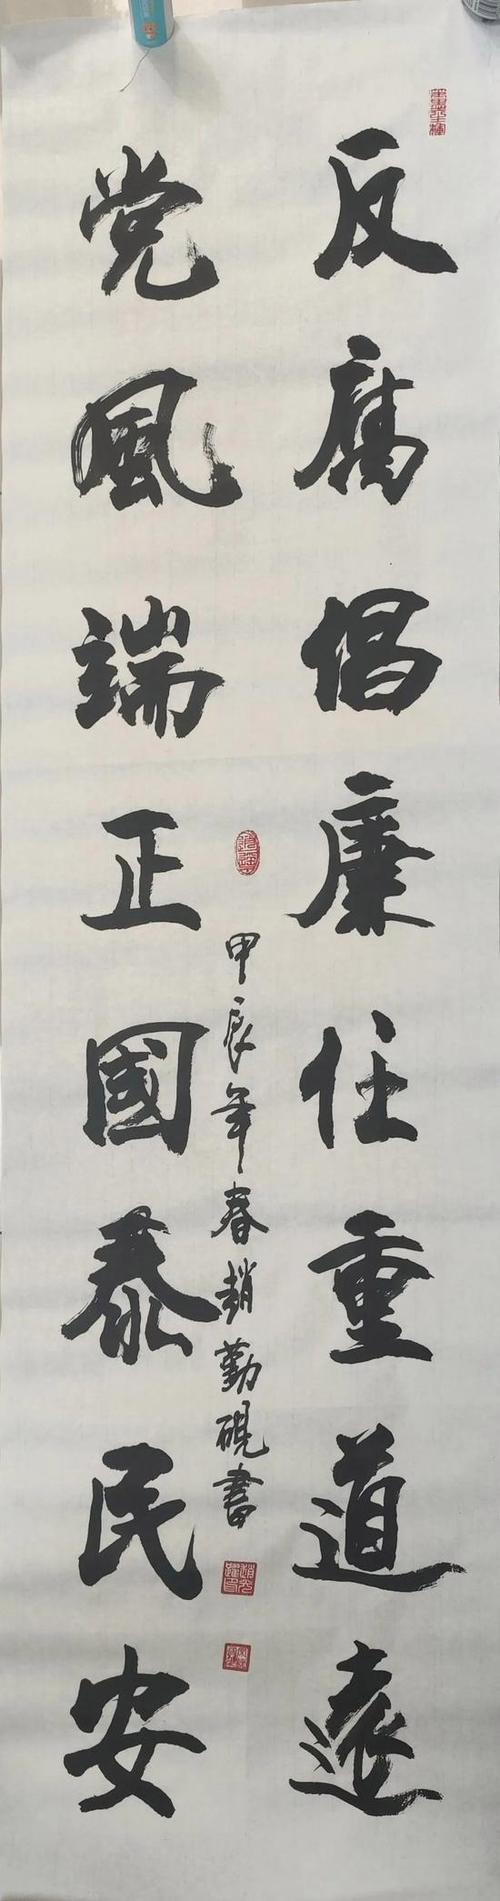 反腐倡廉任重道遠
党風端正國泰民安
甲辰年春趙勤硯書